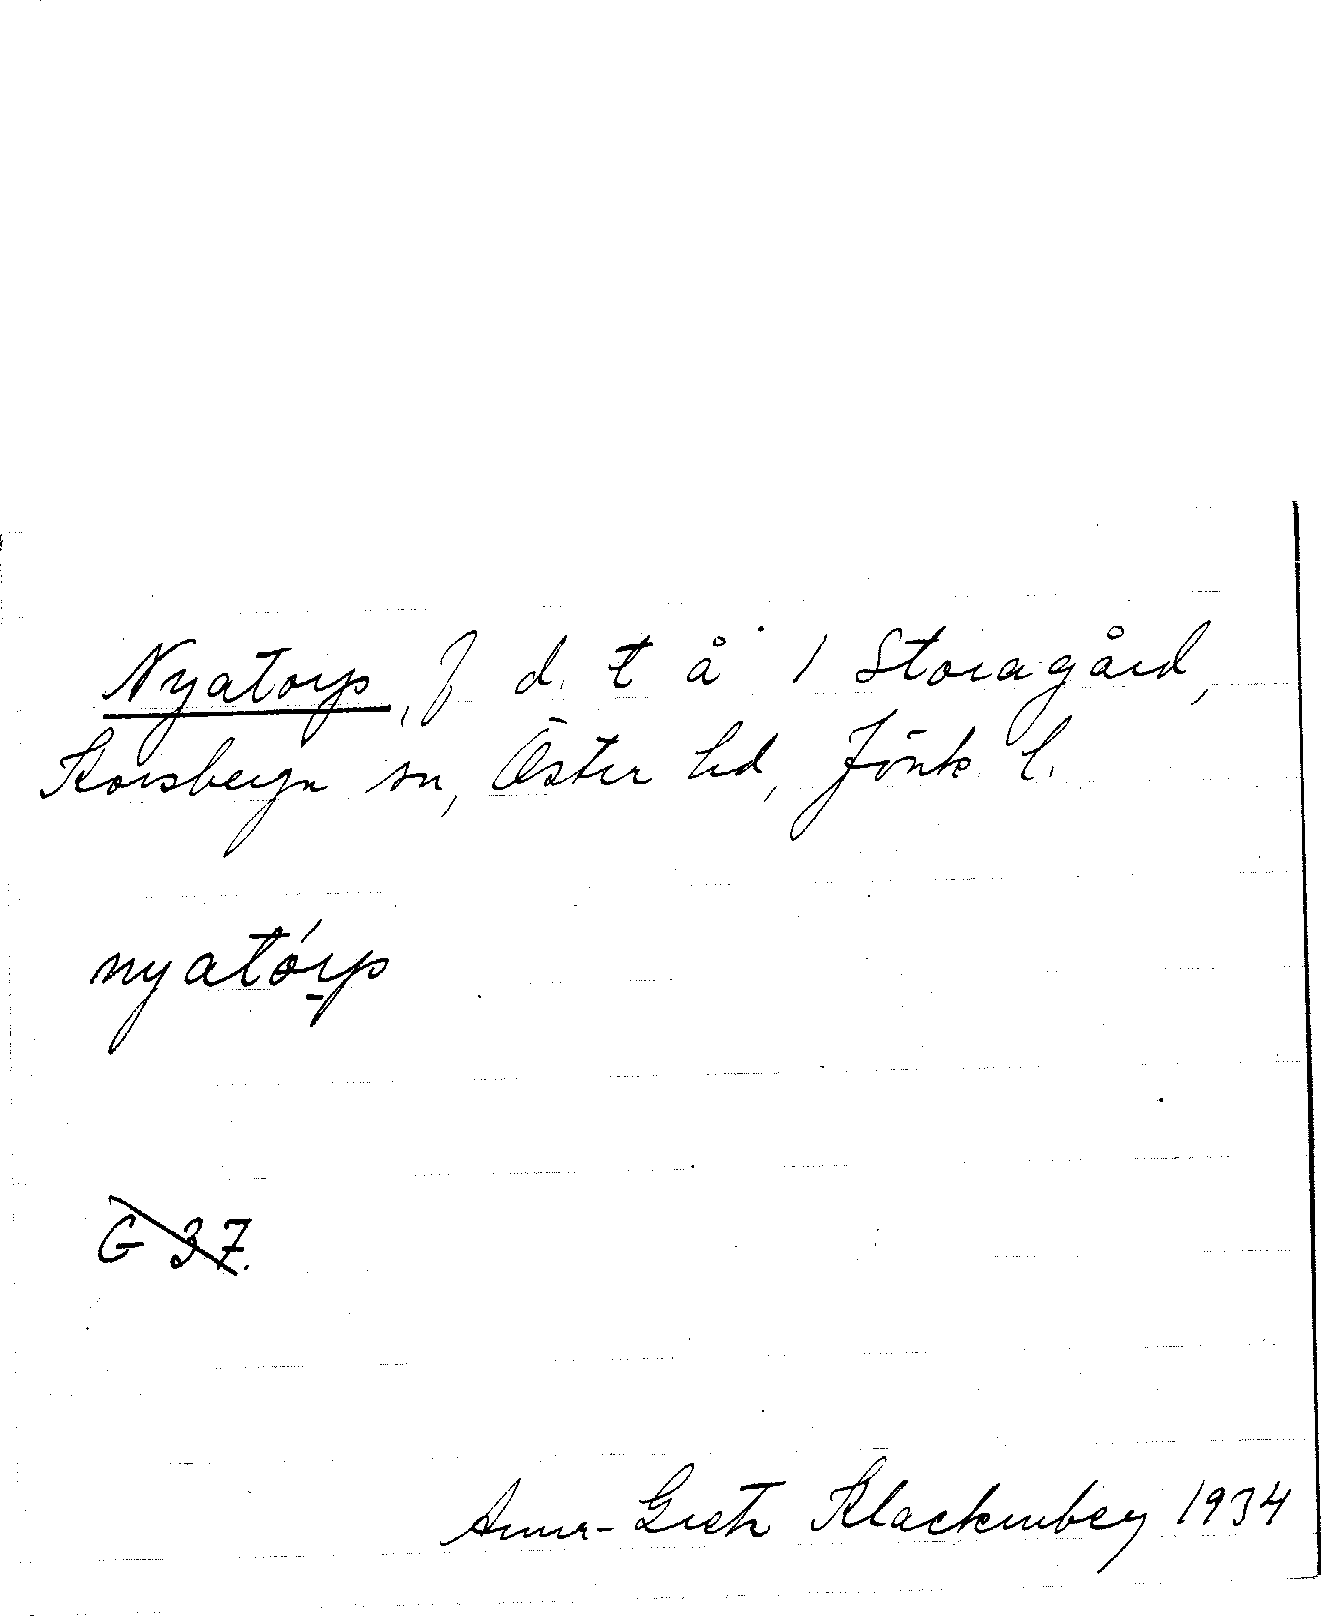 Nyatorp, f d. t å 1 Storagård,
Korsberga sn, Öster hd, Jönk l.
nyatórp
G 37.
Anna-Greta Klackenberg 1934